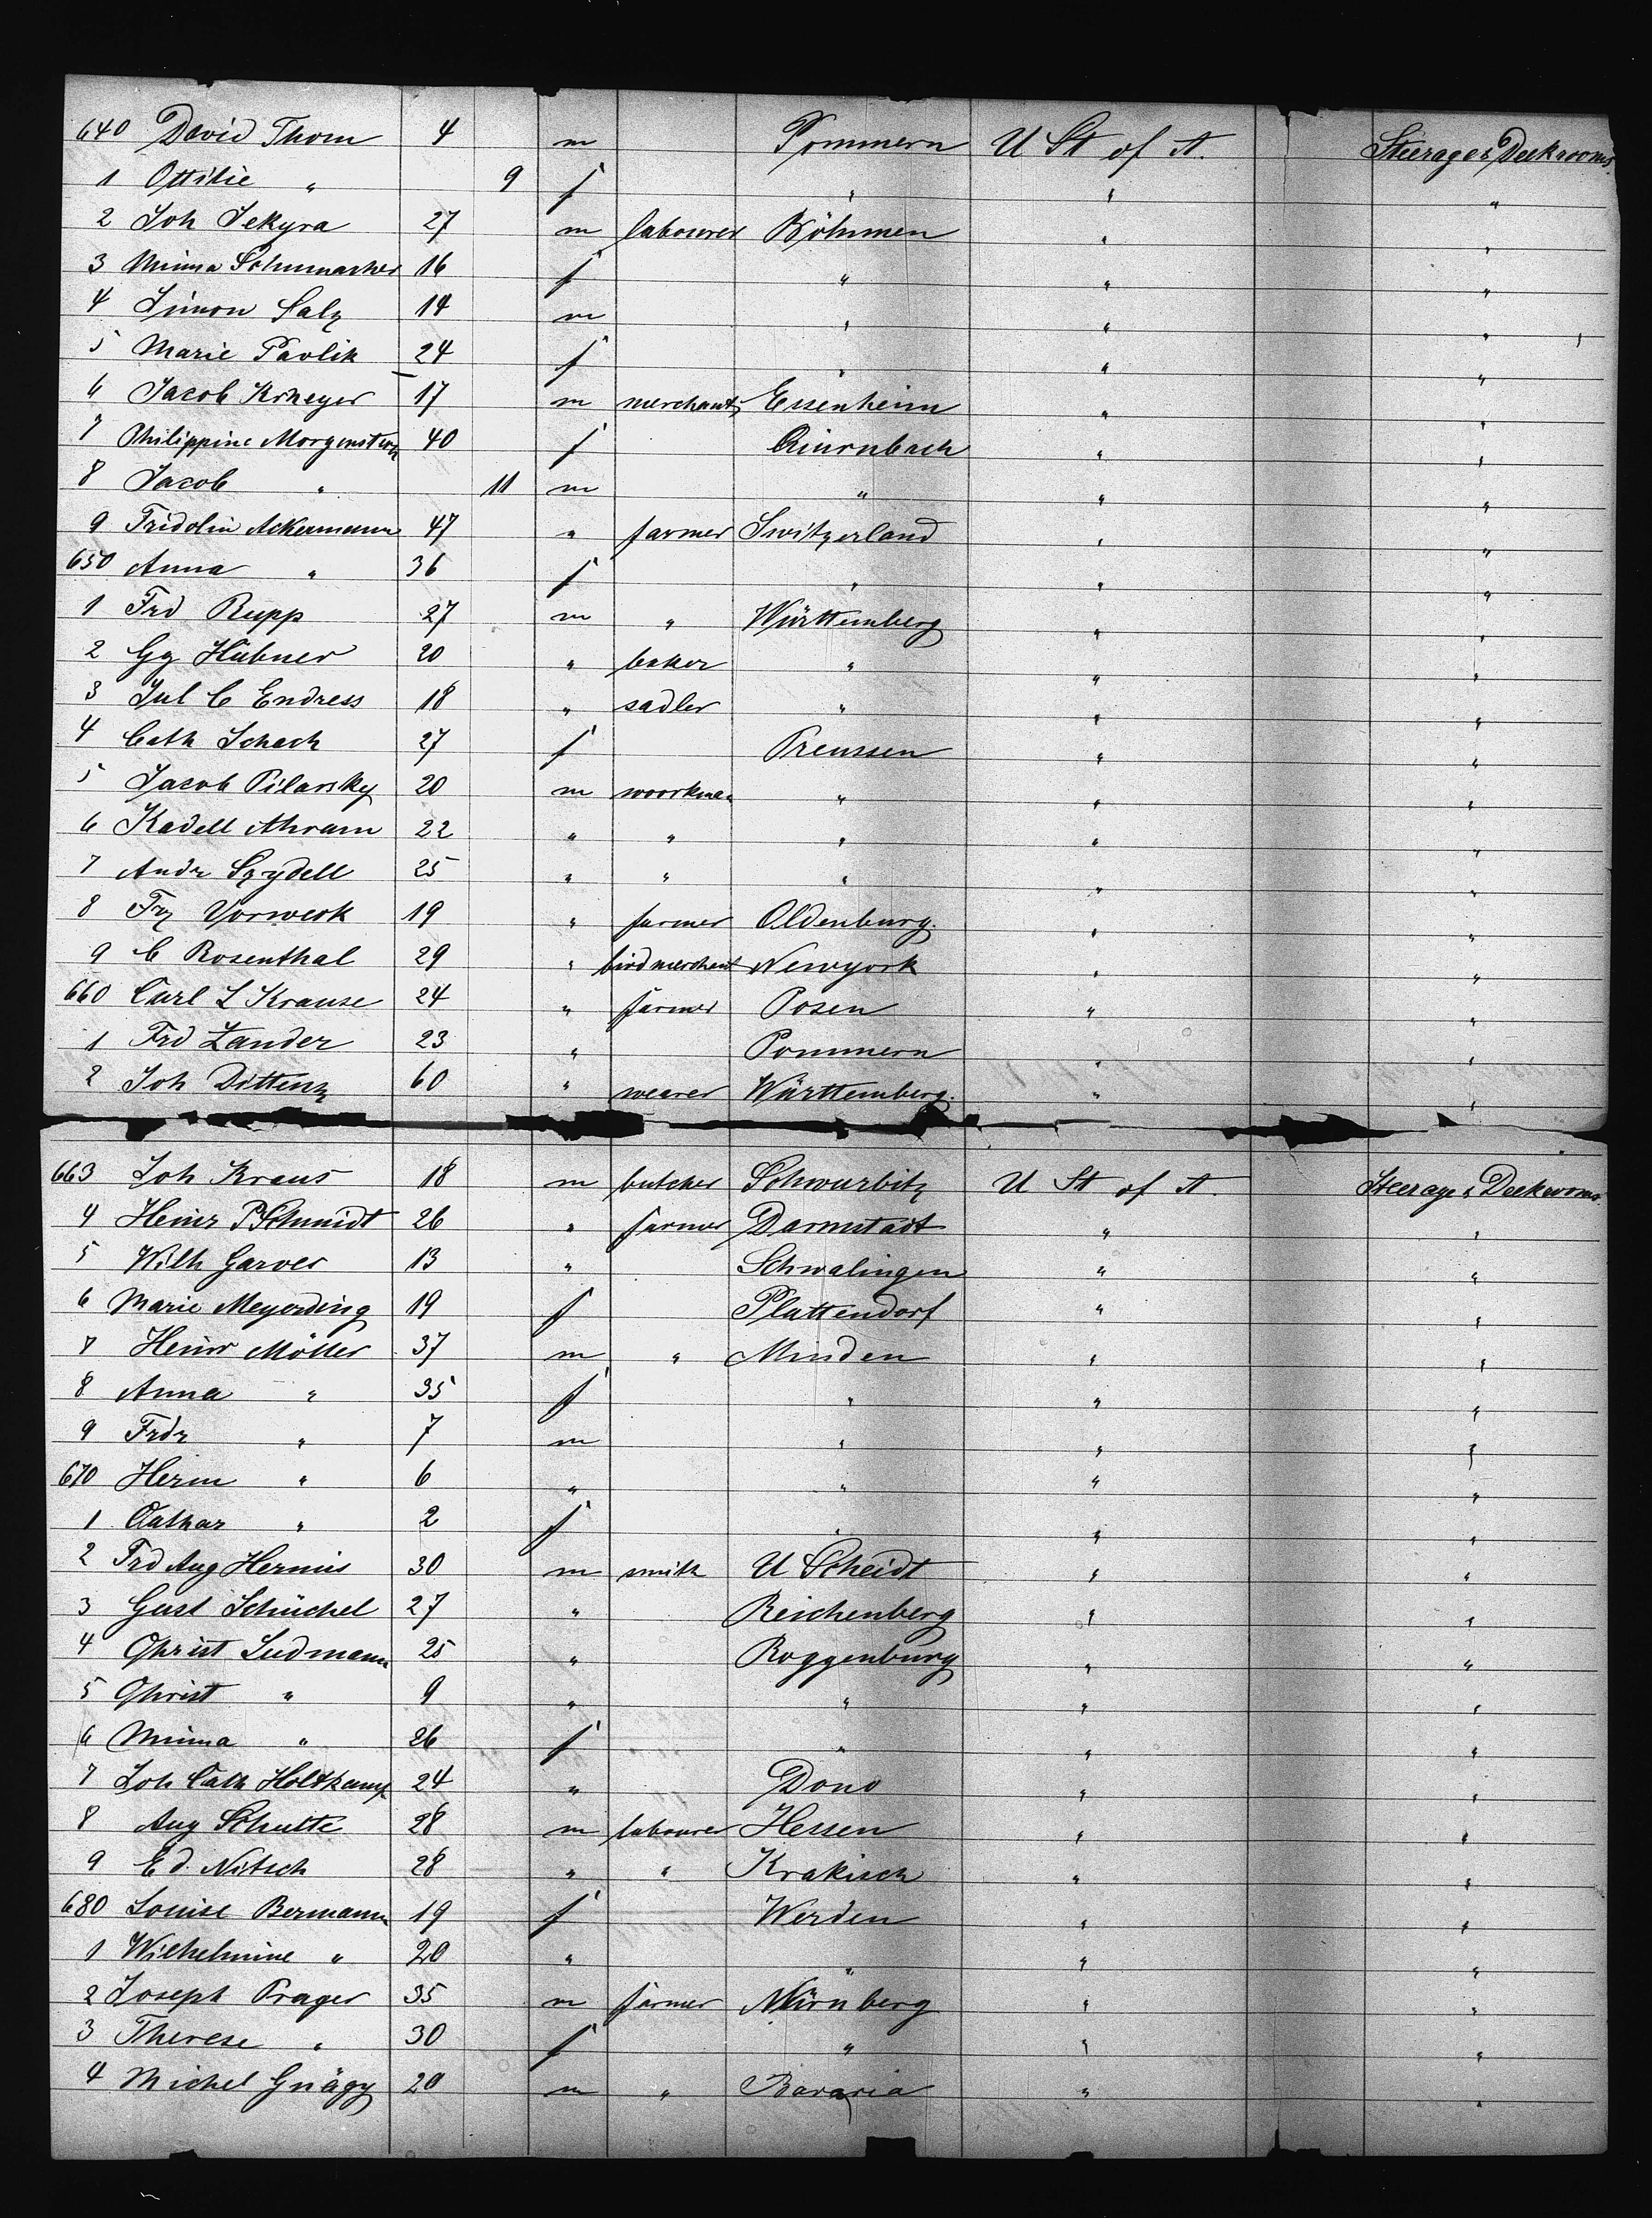 640 David Thom 4 m Pommern U St of A. Steerage & Deckrooms
1 Ottilie " 9 f " " "
2 Joh Sekyra 27 m labourer Böhmen " "
3 Minna Schumacher 16 f " " "
4 Simon Salz 14 m " " "
5 Marie Pavlik 24 f " " "
6 Jacob Krheyer 17 m merchant Essenheim " "
7 Philippine Morgenstern 40 f Quirnbach " "
8 Jacob " 11 m " " "
9 Fridolin Ackermann 47 " farmer Switzerland " "
650 Anna " 36 f " " "
1 Frd Rupp 27 m " Württemberg " "
2 Gg Hübner 20 " baker " " "
3 Jul C Endress 18 " sadler " " "
4 Cath Schach 27 f Preussen " "
5 Jacob Pilarsky 20 m woorkman " " "
6 Kadell Ahram 22 " " " " "
7 Andr Szydell 25 " " " " "
8 Frz Vorwerk 19 " farmer Oldenburg. " "
9 C Rosenthal 29 " birdmerchant Newyork " "
660 Carl L Krause 24 " farmer Posen " "
1 Frd Zander 23 " Pommern " "
2 Joh Dittenz 60 " weaver Württemberg. " "
663 Joh Kraus 18 m butcher Schwurbitz U St of A. Steerage & Deckrooms
4 Heinr P Schmidt 26 " farmer Darmstadt " "
5 Wilh Garves 13 " Schwalingen " "
6 Marie Meyerding 19 f Plattendorf " "
7 Heinr Möller 37 m " Minden " "
8 Anna " 35 f " " "
9 Frdr " 7 m " " "
670 Herm " 6 " " " "
1 Cathar " 2 f " " "
2 Frd Aug Hermis 30 m smith U Scheidt " "
3 Gust Schüchel 27 " Reichenberg " "
4 Christ Sudmann 25 " Roggenburg " "
5 Christ " 9 " " " "
6 Minna " 26 f " " "
7 Joh Cath Holtkamp 24 " Dono " "
8 Aug Schulte 28 m labourer Hessen " "
9 Ed. Nitsch 28 " " Krakisch " "
680 Louise Bermann 19 f Werden " "
1 Wilhelmine " 20 " " " "
2 Joseph Prager 35 m farmer Nürnberg " "
3 Therese " 30 f " " "
4 Michel Gnägy 20 m " Bavaria " "